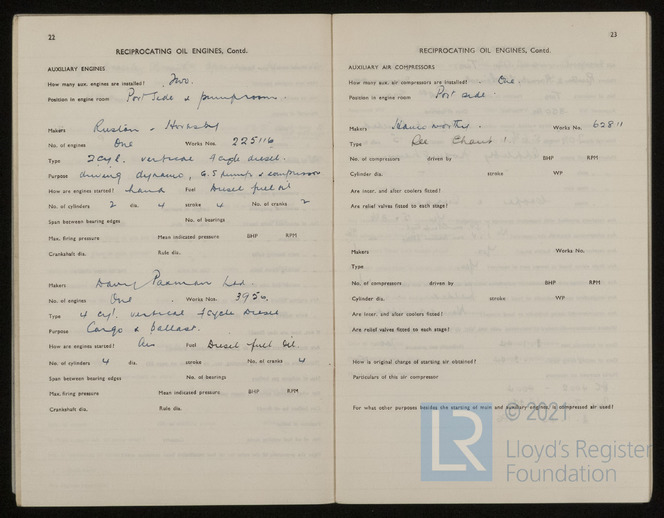 22
RECIPROCATING OIL ENGINES, Contd.
AUXILIARY ENGINES
How many aux. engines are installed? Two.
Position in engine room Port side & pumproom.
Makers Ruston & Hornsby
No. of engines One Works Nos. 225116
Type 2 cyl. vertical 4 cycle diesel.
Purpose driving dynamo, G.S. pump & compressor
How are engines started? hand Fuel Diesel fuel oil
No. of cylinders 2 dia. 4 stroke 4 No. of cranks 2
Span between bearing edges No. of bearings
Max. firing pressure Mean indicated pressure BHP RPM
Crankshaft dia. Rule dia.
Makers Davey Paxman Ltd.
No. of engines One Works Nos. 3956.
Type 4 cyl. vertical 4 cycle Diesel
Purpose Cargo & ballast.
How are engines started? Air Fuel Diesel fuel oil.
No. of cylinders 4 dia. stroke No. of cranks 4
Span between bearing edges No. of bearings
Max. firing pressure Mean indicated pressure BHP RPM
Crankshaft dia. Rule dia.
23
RECIPROCATING OIL ENGINES, Contd.
AUXILIARY AIR COMPRESSORS
How many aux. air compressors are installed? One.
Position in engine room Port side.
Makers Works No. 62811
Type
No. of compressors driven by BHP RPM
Cylinder dia. stroke WP
Are inter. and after coolers fitted?
Are relief valves fitted to each stage?
Makers Works No.
Type
No. of compressors driven by BHP RPM
Cylinder dia. stroke WP
Are inter. and after coolers fitted?
Are relief valves fitted to each stage?
How is original charge of starting air obtained?
Particulars of this air compressor
For what other purposes besides the starting of main and auxiliary engines, is compressed air used?
© 2021
LR
Lloyd's Register
Foundation